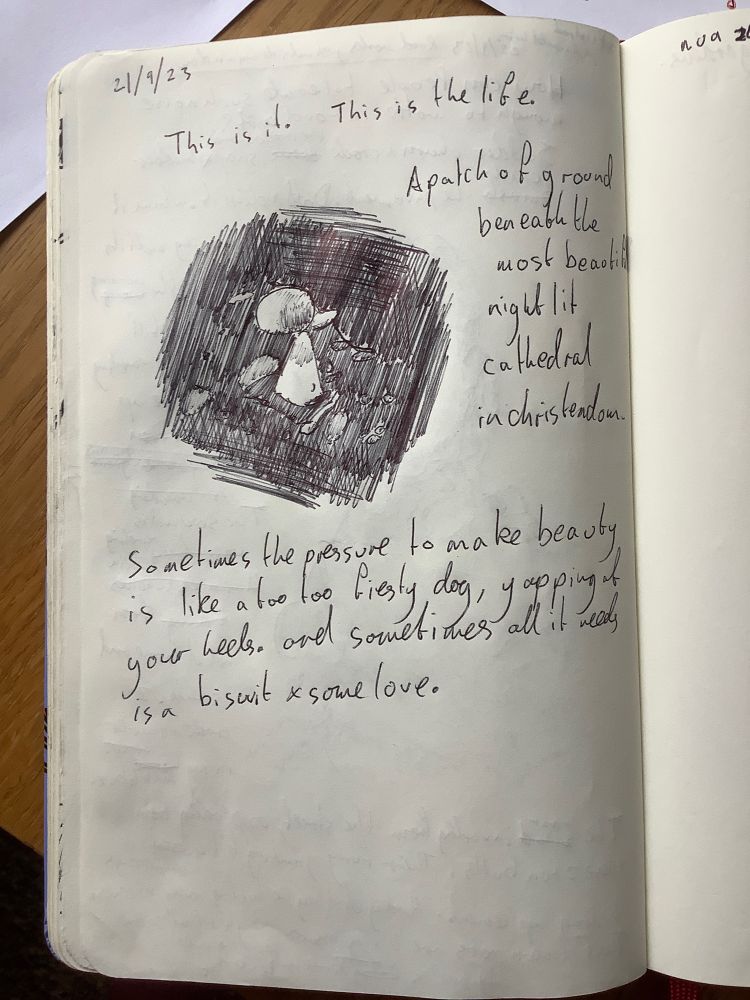 21/9/23
This is it. This is the life.
A patch of ground
beneath the
most beautiful
night lit
cathedral
in christendom.
Sometimes the pressure to make beauty
is like a too too fiesty dog, yapping at
your heels. and sometimes all it needs
is a biscuit & some love.
nua